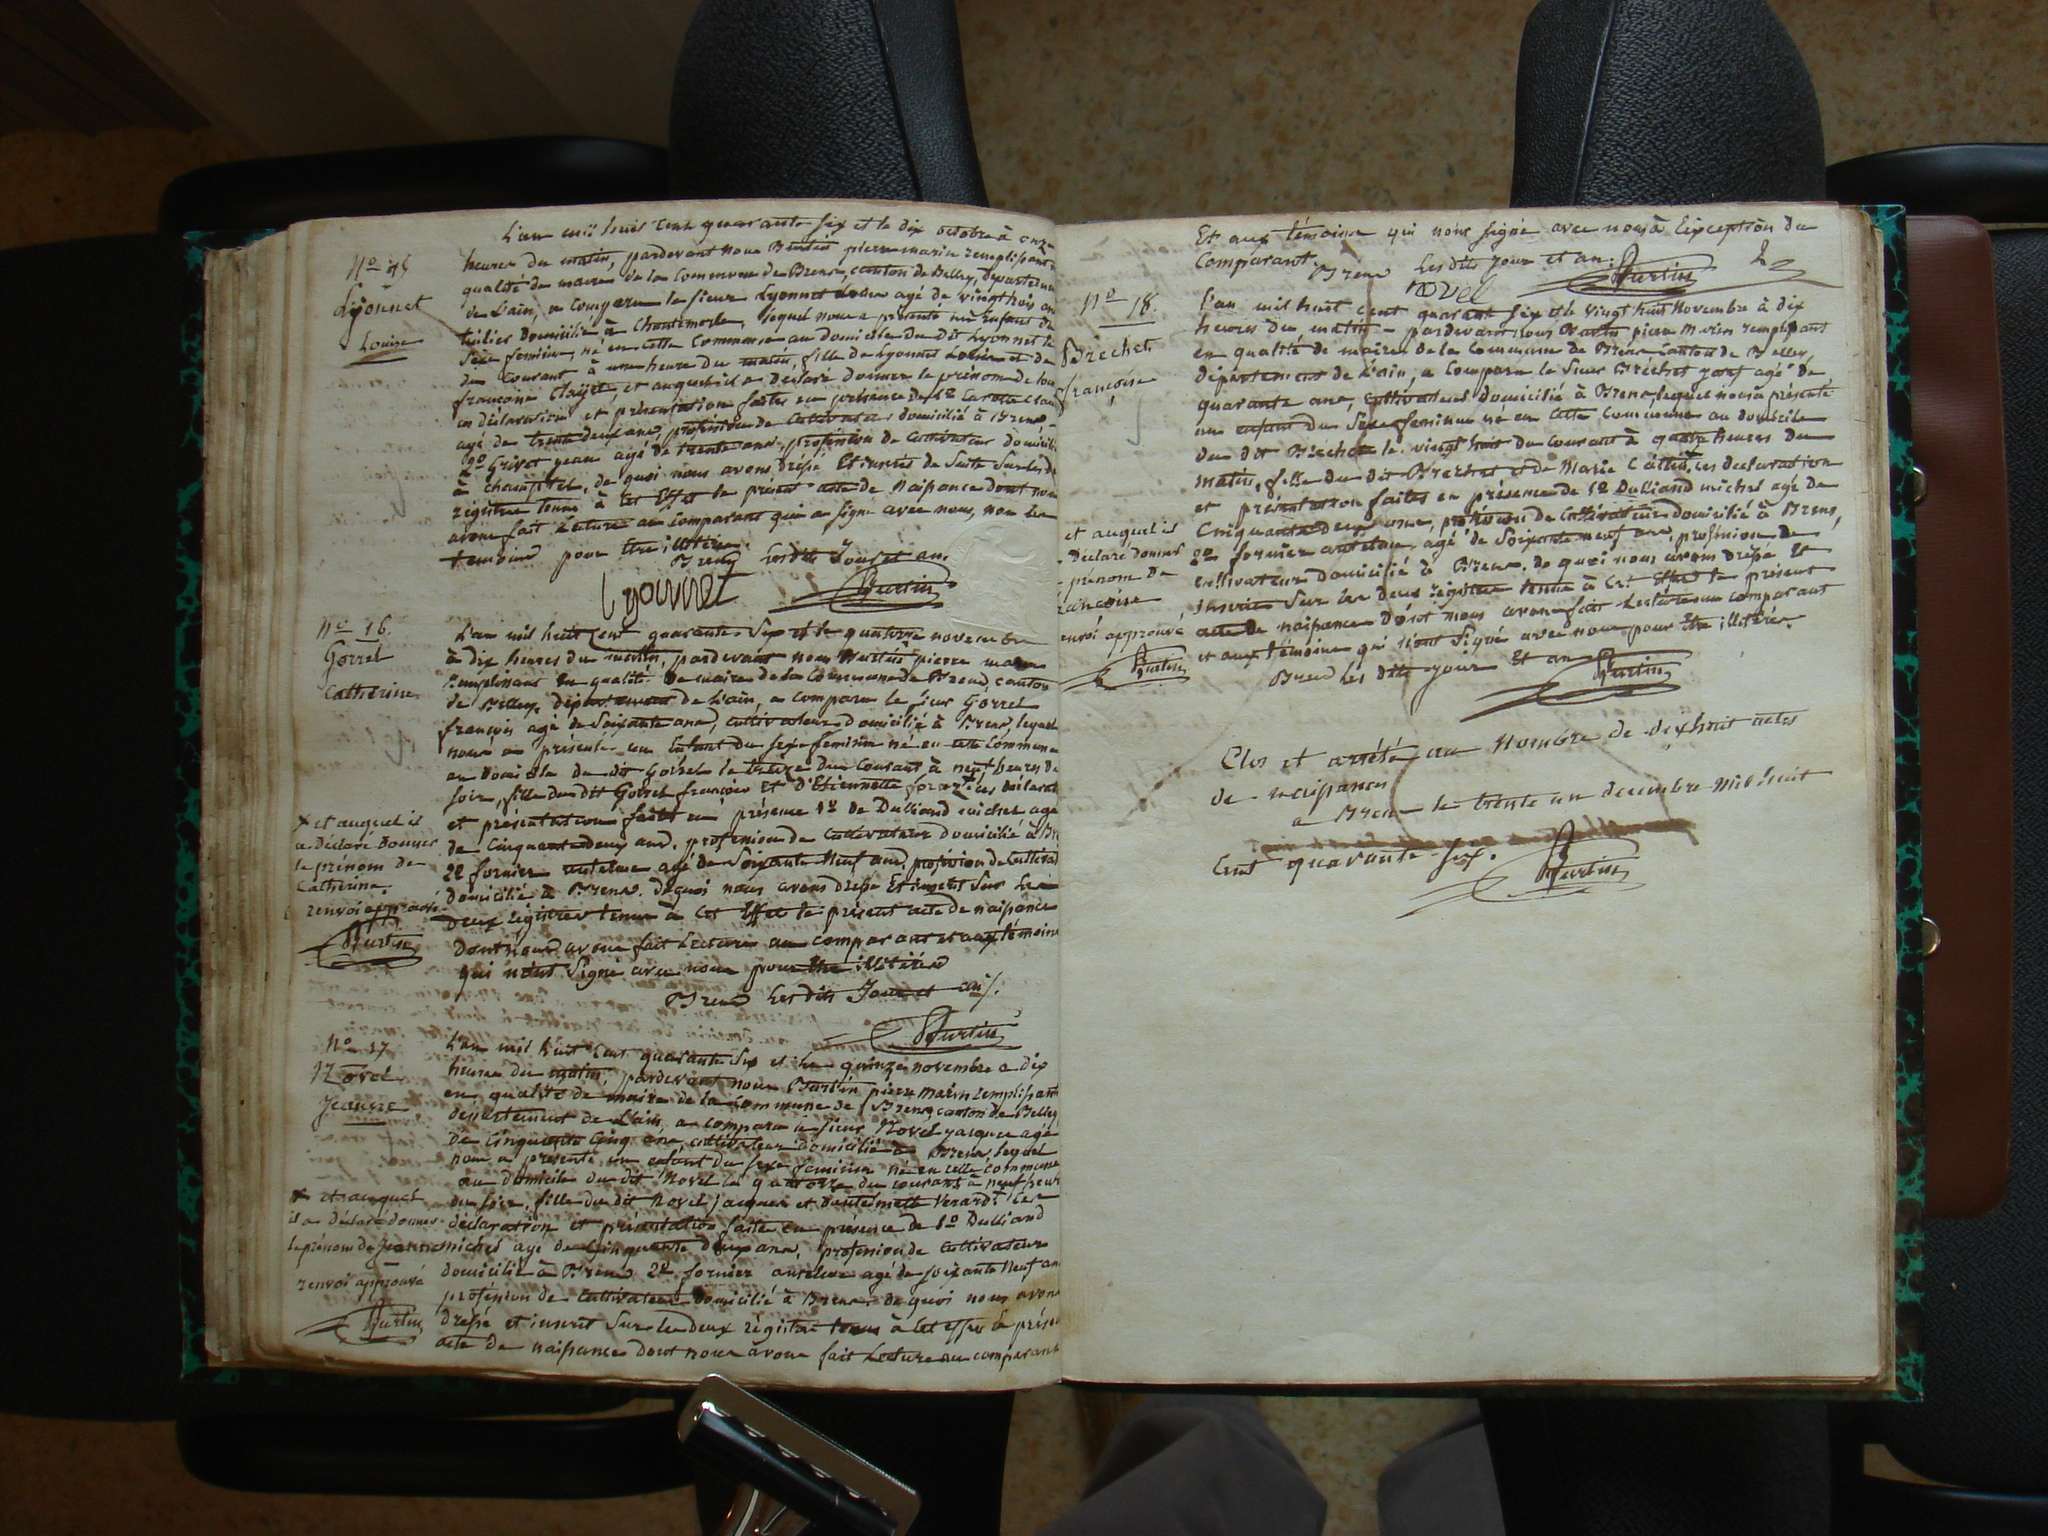 L'an mil huit cent quarante six et le dix octobre à onze
N° 15
Lyonnet
Louise
heures du matin, pardevant nous Burtin pierre marin remplissant
qualité de maire de la Commune de Brens, canton de Belley, departement
de L'ain, a comparu le sieur Lyonnet agé de vingt trois ans
tuilier domicilié à Chantemerle, lequel nous a présenté un Enfant du
sexe feminin, né en cette Commune au domicile du dit Lyonnet le
du Courant à une heure du matin, fille de Lyonnet et de
francoise Clayet, et auquel il a déclaré donner le prénom de
ces déclaration et présentation faites en présence de 1° Claude
agé de trente deux ans, profession de Cultivateur domicilié à Brens
2° Grivet jean agé de trente ans, profession de Cultivateur domicilié
à champtel, de quoi nous avons dréssé Et inscris de Suite Sur les
régistres tenus à cet Effet le présent acte de Naissance dont nous
avons fait Lecture au Comparant qui a signé avec nous, non les
temoins pour être illétérés.
Brens Les dits Jour et an.
Lyonnet Burtin
N° 16.
Gorrel
Catherine
L'an mil huit Cent quarante Six et le quatorze novembre
à dix heures du matin, pardevant nous Burtin pierre marin
remplissant En qualité de maire de la Commune de Brens, canton
de Belley, département de L'ain, a comparu le sieur Gorrel
françois agé de Soixante ans, cultivateur domicilié à Brens, lequel
nous a présenté un Enfant du sexe feminin né en cette Commune
au domicile du dit Gorrel le treize du Courant à neuf heures du
soir, fille du dit Gorrel françois Et d'Etiennette foraz + ces déclarat
et présentation faites en présence 1° de Dulliand michel agé
de Cinquante deux ans, profession de Cultivateur domicilié à Br
2° fornier antelme agé de Soixante Neuf ans, profession de Cultiva
domicilié à Brens. De quoi nous avons dréssé Et inscrit Sur les
Deux régistres tenus à Cet Effet le présent acte de naissance
Dont nous avons fait Lecture au comparant et aux témoins
qui n'ont Signé avec nous pour être illétérés
Brens Les dits Jour et an.
Burtin
+ et auquel il
a Déclaré Donner
le prénom de
Catherine.
renvoi approuvé
Burtin
N° 17
Novel
Jeanne
L'an mil huit Cent quarante Six et le quinze novembre à dix
heures du matin, pardevant nous Burtin pierre marin remplissant
en qualité de maire de la Commune de Brens, canton de Belley
département de L'ain, a comparu le sieur Novel jacques agé
de Cinquante Cinq ans, cultivateur domicilié à Brens, lequel
nous a présenté un enfant du sexe feminin né en cette commune
au domicile du dit Novel le quatorze du courant à neuf heures
du soir, fille du dit Novel jacques et d'antelmette Venard + ces
déclaration et présentation faite en présence de 1° Dulliand
michel agé de Cinquante Deux ans, profession de Cultivateur
domicilié à Brens 2° fornier antelme agé de soixante Neuf ans
profession de Cultivateur domicilié à Brens. de quoi nous avons
dréssé et inscrit Sur les deux régistres tenus à Cet effet le présent
acte de naissance dont nous avons fait Lecture au comparant
+ et auquel
il a Déclaré donner
le prénom de Jeanne
renvoi approuvé
Burtin
Et aux témoins qui n'ont signé avec nous à L'exception du
Comparant. Brens Les dits jour et an.
novel Burtin
N° 18.
Brechet
françoise
L'an mil huit Cent quarante Six et le vingt huit Novembre à dix
heures du matin - pardevant nous Burtin pierre Marin remplissant
en qualité de maire de la Commune de Brens Canton de Belley,
département de L'ain, a comparu le Sieur Bréchet josef agé de
quarante ans, cultivateur domicilié à Brens, lequel nous a présenté
un enfant du Sexe feminin né en cette Commune au domicile
du dit Brechet le vingt huit du Courant à quatre heures du
matin, fille du dit Brechet et de Marie Cattin, ces declaration
et présentation faites en présence de 1° Dulliand michel agé de
Cinquante deux ans, profession de Cultivateur domicilié à Brens,
2° fornier antelme agé de Soixante neuf ans, profession de
cultivateur domicilié à Brens. de quoi nous avons dréssé Et
inscrit Sur les deux régistres tenus à Cet Effet le présent
acte de naissance Dont nous avons fait Lecture au comparant
et aux témoins qui n'ont signé avec nous pour être illétérés.
Brens les dits jour Et an Burtin
et auquel il
Déclaré Donner
prénom de
françoise
renvoi approuvé
Burtin
Clos et arrété au Nombre de dix huit actes
de Naissances
a Brens le trente un decembre mil huit
Cent quarante Six. Burtin